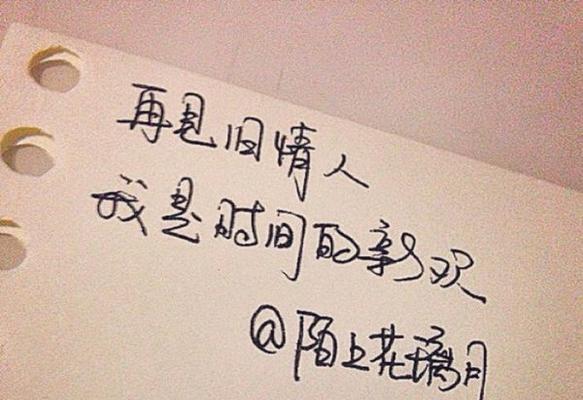 再见旧情人
我是时间的新欢
@陌上花璃月